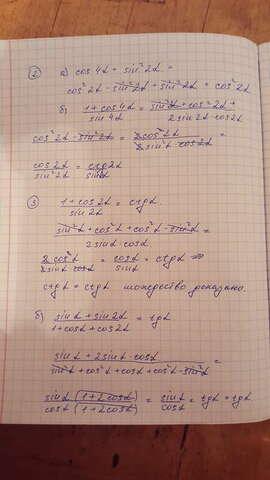 ② а) cos4α + sin²2α =
cos²2α - sin²2α + sin²2α = cos²2α
б) 1+cos4α / sin4α = sin²2α + cos²2α + / 2sin2α·cos2α
cos²2α - sin²2α = 2cos²2α / 2sin2α·cos2α =
cos2α / sin2α = ctg2α
③ 1+cos2α / sin2α = ctgα.
sin²α + cos²α + cos²α - sin²α / 2sinα·cosα =
2cos²α / 2sinα cosα = cosα / sinα = ctgα ⇒
ctgα = ctgα тождество доказано.
б) sinα + sin2α / 1+cosα+cos2α = tgα
sinα + 2sinα·cosα / sin²α + cos²α + cosα + cos²α - sin²α =
sinα(1+2cosα) / cosα(1+2cosα) = sinα / cosα = tgα = tgα